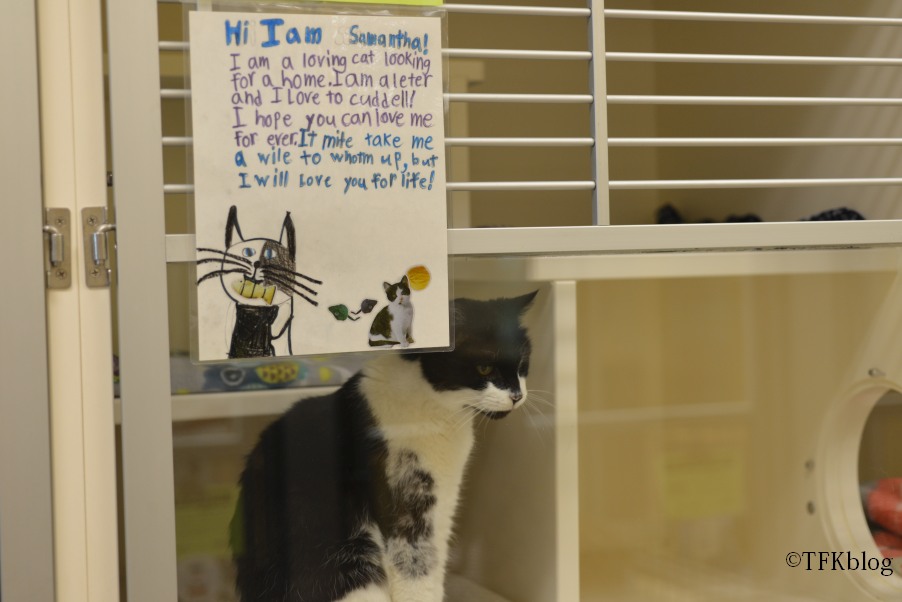 Hi I am Samantha!
I am a loving cat looking
for a home. I am a leter
and I Love to cuddell!
I hope you can love me
for ever. It mite take me
a wile to whotm up, but
I will Love you for life!
©TFKblog